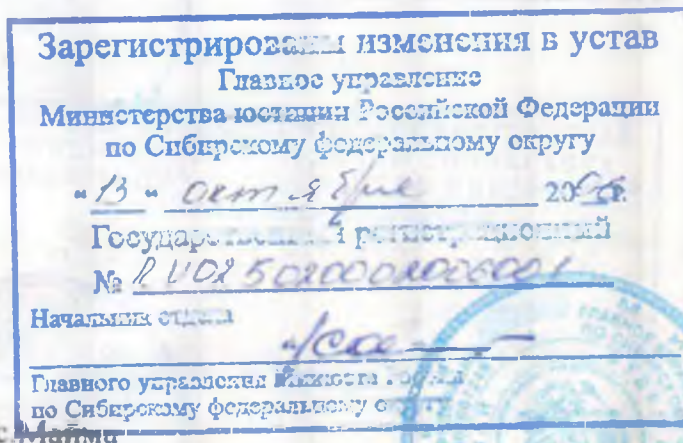 Зарегистрированы изменения в устав
Главное управление
Министерства юстиции Российской Федерации
по Сибирскому федеральному округу
"13" октября 20 г.
Государственный регистрационный
№ RU025020002006001
Начальник отдела
Главного управления Минюста
по Сибирскому федеральному
с. Майма